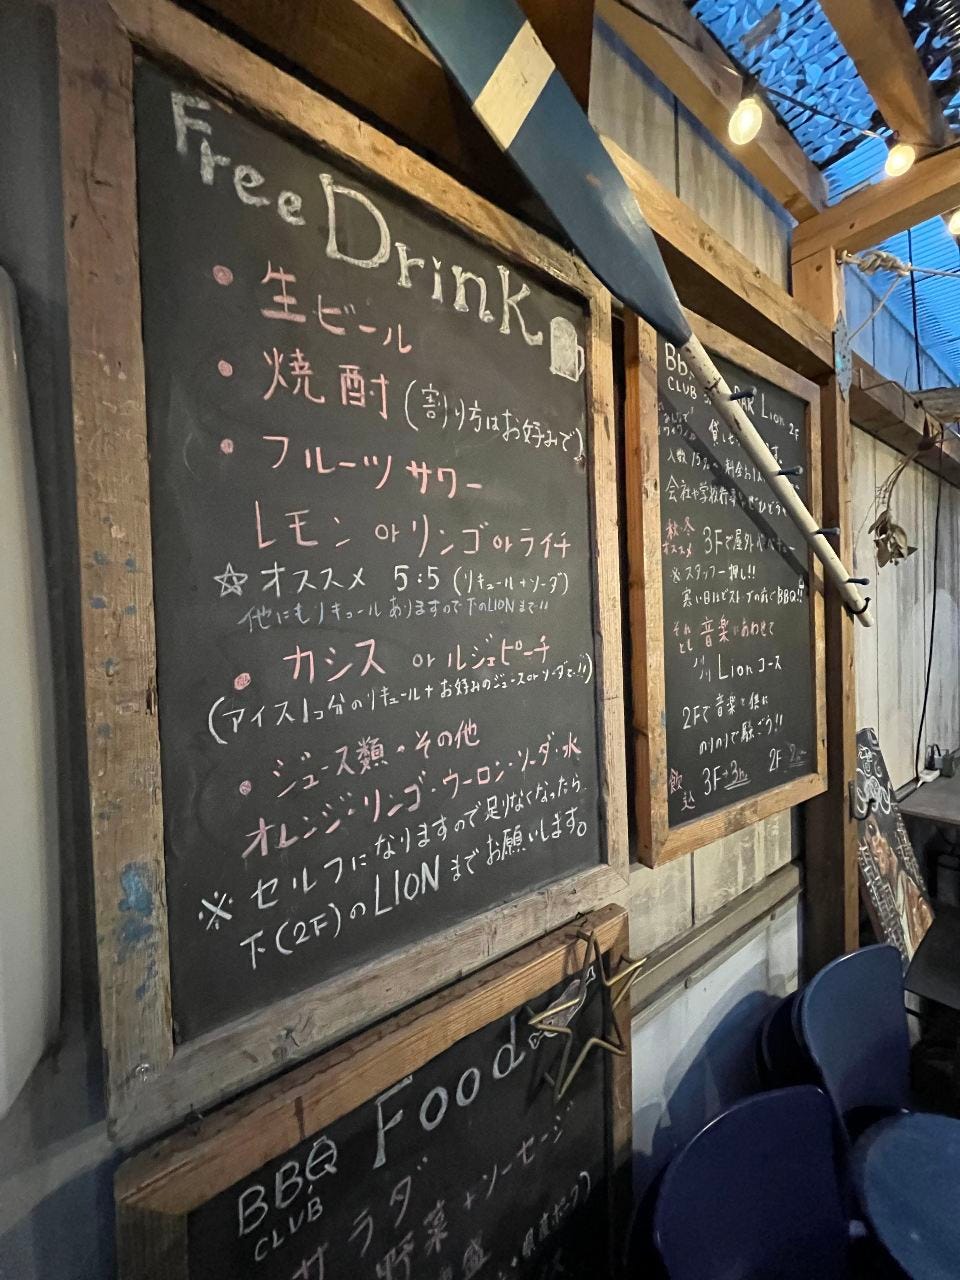 Free Drink
・生ビール
・焼酎(割り方はお好みで)
・フルーツサワー
レモン or リンゴ or ライチ
☆オススメ 5:5 (リキュール+ソーダ)
他にもリキュールありますので下のLIONまで!!
・カシス or ルジェピーチ
(アイス1コ分のリキュール+お好みのジュース or ソーダで!!)
・ジュース類・その他
オレンジ・リンゴ・ウーロン・ソーダ・水
※セルフになりますので足りなくなったら
下(2F)のLIONまでお願いします。
BBQ CLUB Food
サラダ
野菜+ソーセージ
盛
CLUB
BAR Lion 2F
貸し
人数15名
料金
会社や学校
秋・冬オススメ
3Fで屋外
※スタッフ一押し!!
寒い日はストーブの前でBBQ!!
音楽にあわせて
Lionコース
2Fで音楽と供に
のりのりで騒ごう!!
飲込 3F→3h. 2F